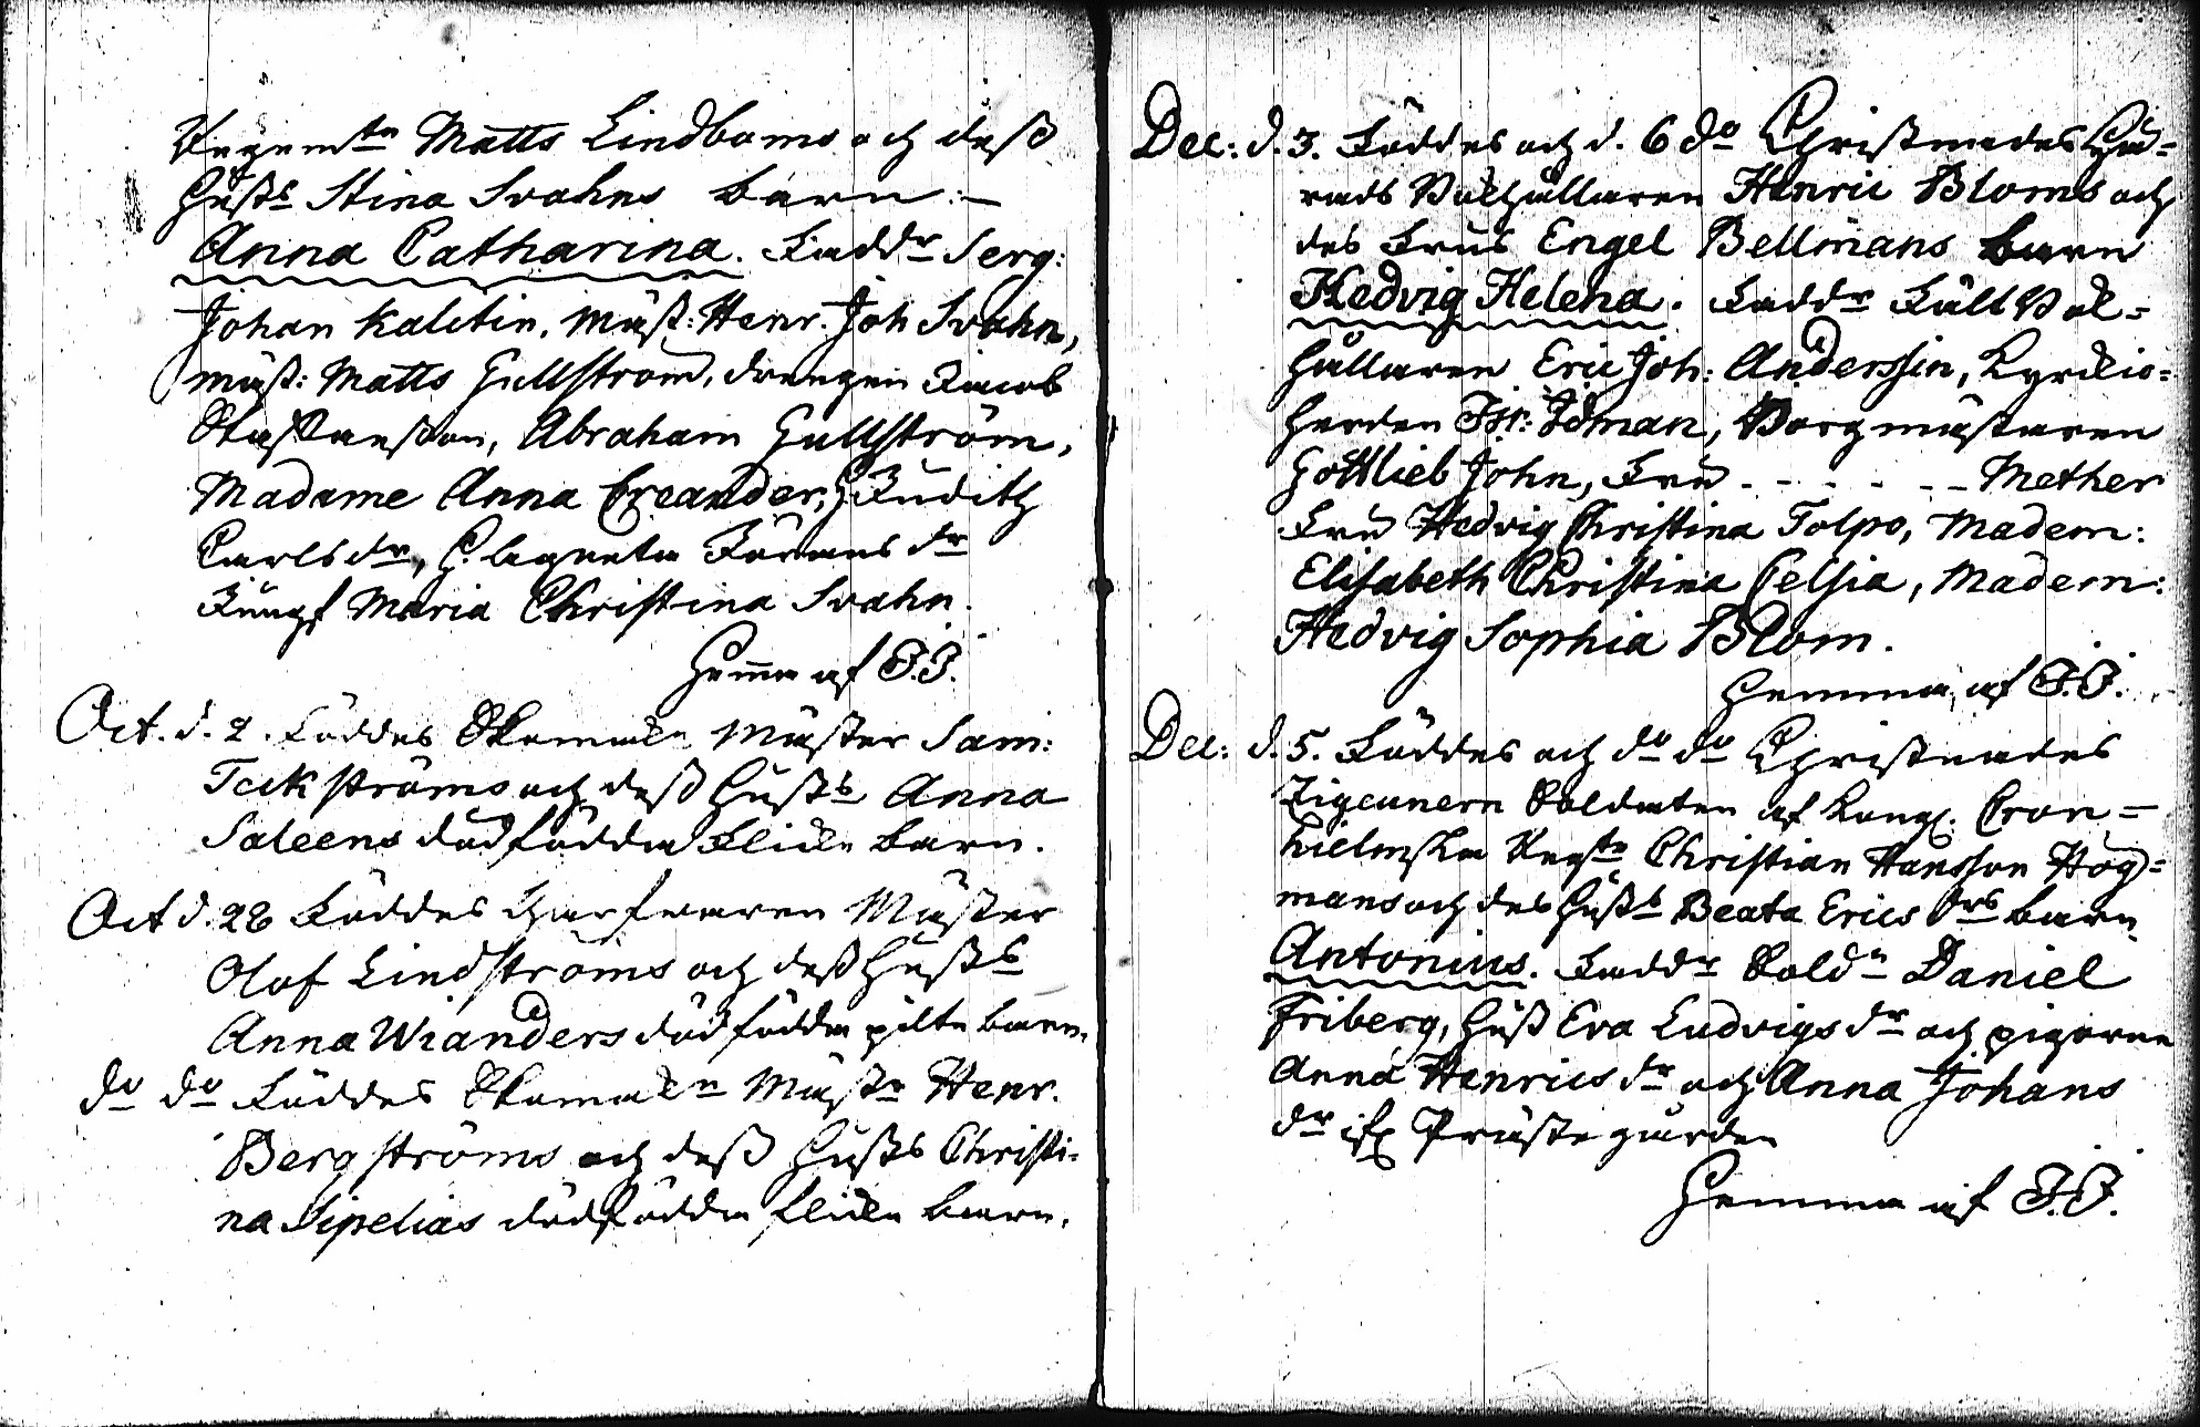 Regemtn Matts Lindboms och dess
hustrs Stina Svahns barn:
Anna Catharina. Faddr Serg:
Johan Kalitin, mäst: Henr. Joh Svahn,
mäst: Matts Gullström, drengen Jacob
Abraham Gullström,
Madame Anna Creander, H. Judith
Carlsdr, H. Agneta Jöransdr
Jungf Maria Christina Svahn.
Hemma af J.J.
Oct. d. 2. Föddes Skomakn Mäster Sam:
Teckströms och dess hustrs Anna
Saleens dödfödda flicke barn.
Oct d. 28 Föddes garfvaren Mäster
Olof Lindströms och dess hustrs
Anna Wianders dödfödda pilte barn.
do do Föddes Skomakn Mästr Henr.
Bergströms och dess hustrs Christi-
na Sipelias dödfödda flicke barn.
Dec: d. 3. Föddes och d. 6 do Christnades Hä-
rads Md Henric Bloms och
des Frus Engel Bellmans barn
Hedvig Helena. Faddr Fält
hållaren Eric Joh: Anderssin, Kyrckio-
herden Isr: Idman, Borgmästaren
Gottlieb John, Fru - - - - - - Mether
Fru Hedvig Christina Tolpo, Madem:
Elisabeth Christina Celsia, Madem:
Hedvig Sophia Blom.
Hemma af J.J.
Dec: d. 5. Föddes och do do Christnades
Zigeunern Soldaten af Kongl. Cron-
hielmska Regtn Christian Hansson Hög-
mans och des hustrs Beata Erics drs barn
Antonius. Faddr Soldn Daniel
Friberg, hust Eva Ludvigsdr och pigorna
Anna Henricsdr och Anna Johans
dr ifr Prästegården
Hemma af J.J.